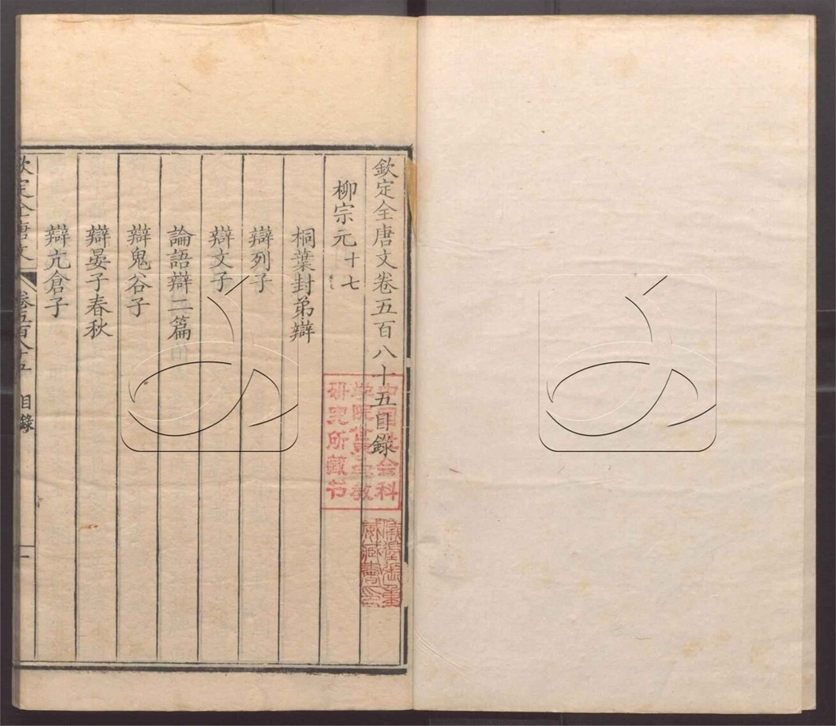 欽定全唐文卷五百八十五目錄
柳宗元十七
桐葉封弟辯
辯列子
辯文子
論語辯二篇
辯鬼谷子
辯晏子春秋
辯亢倉子
欽定全唐文 卷五百八十五 目錄 一